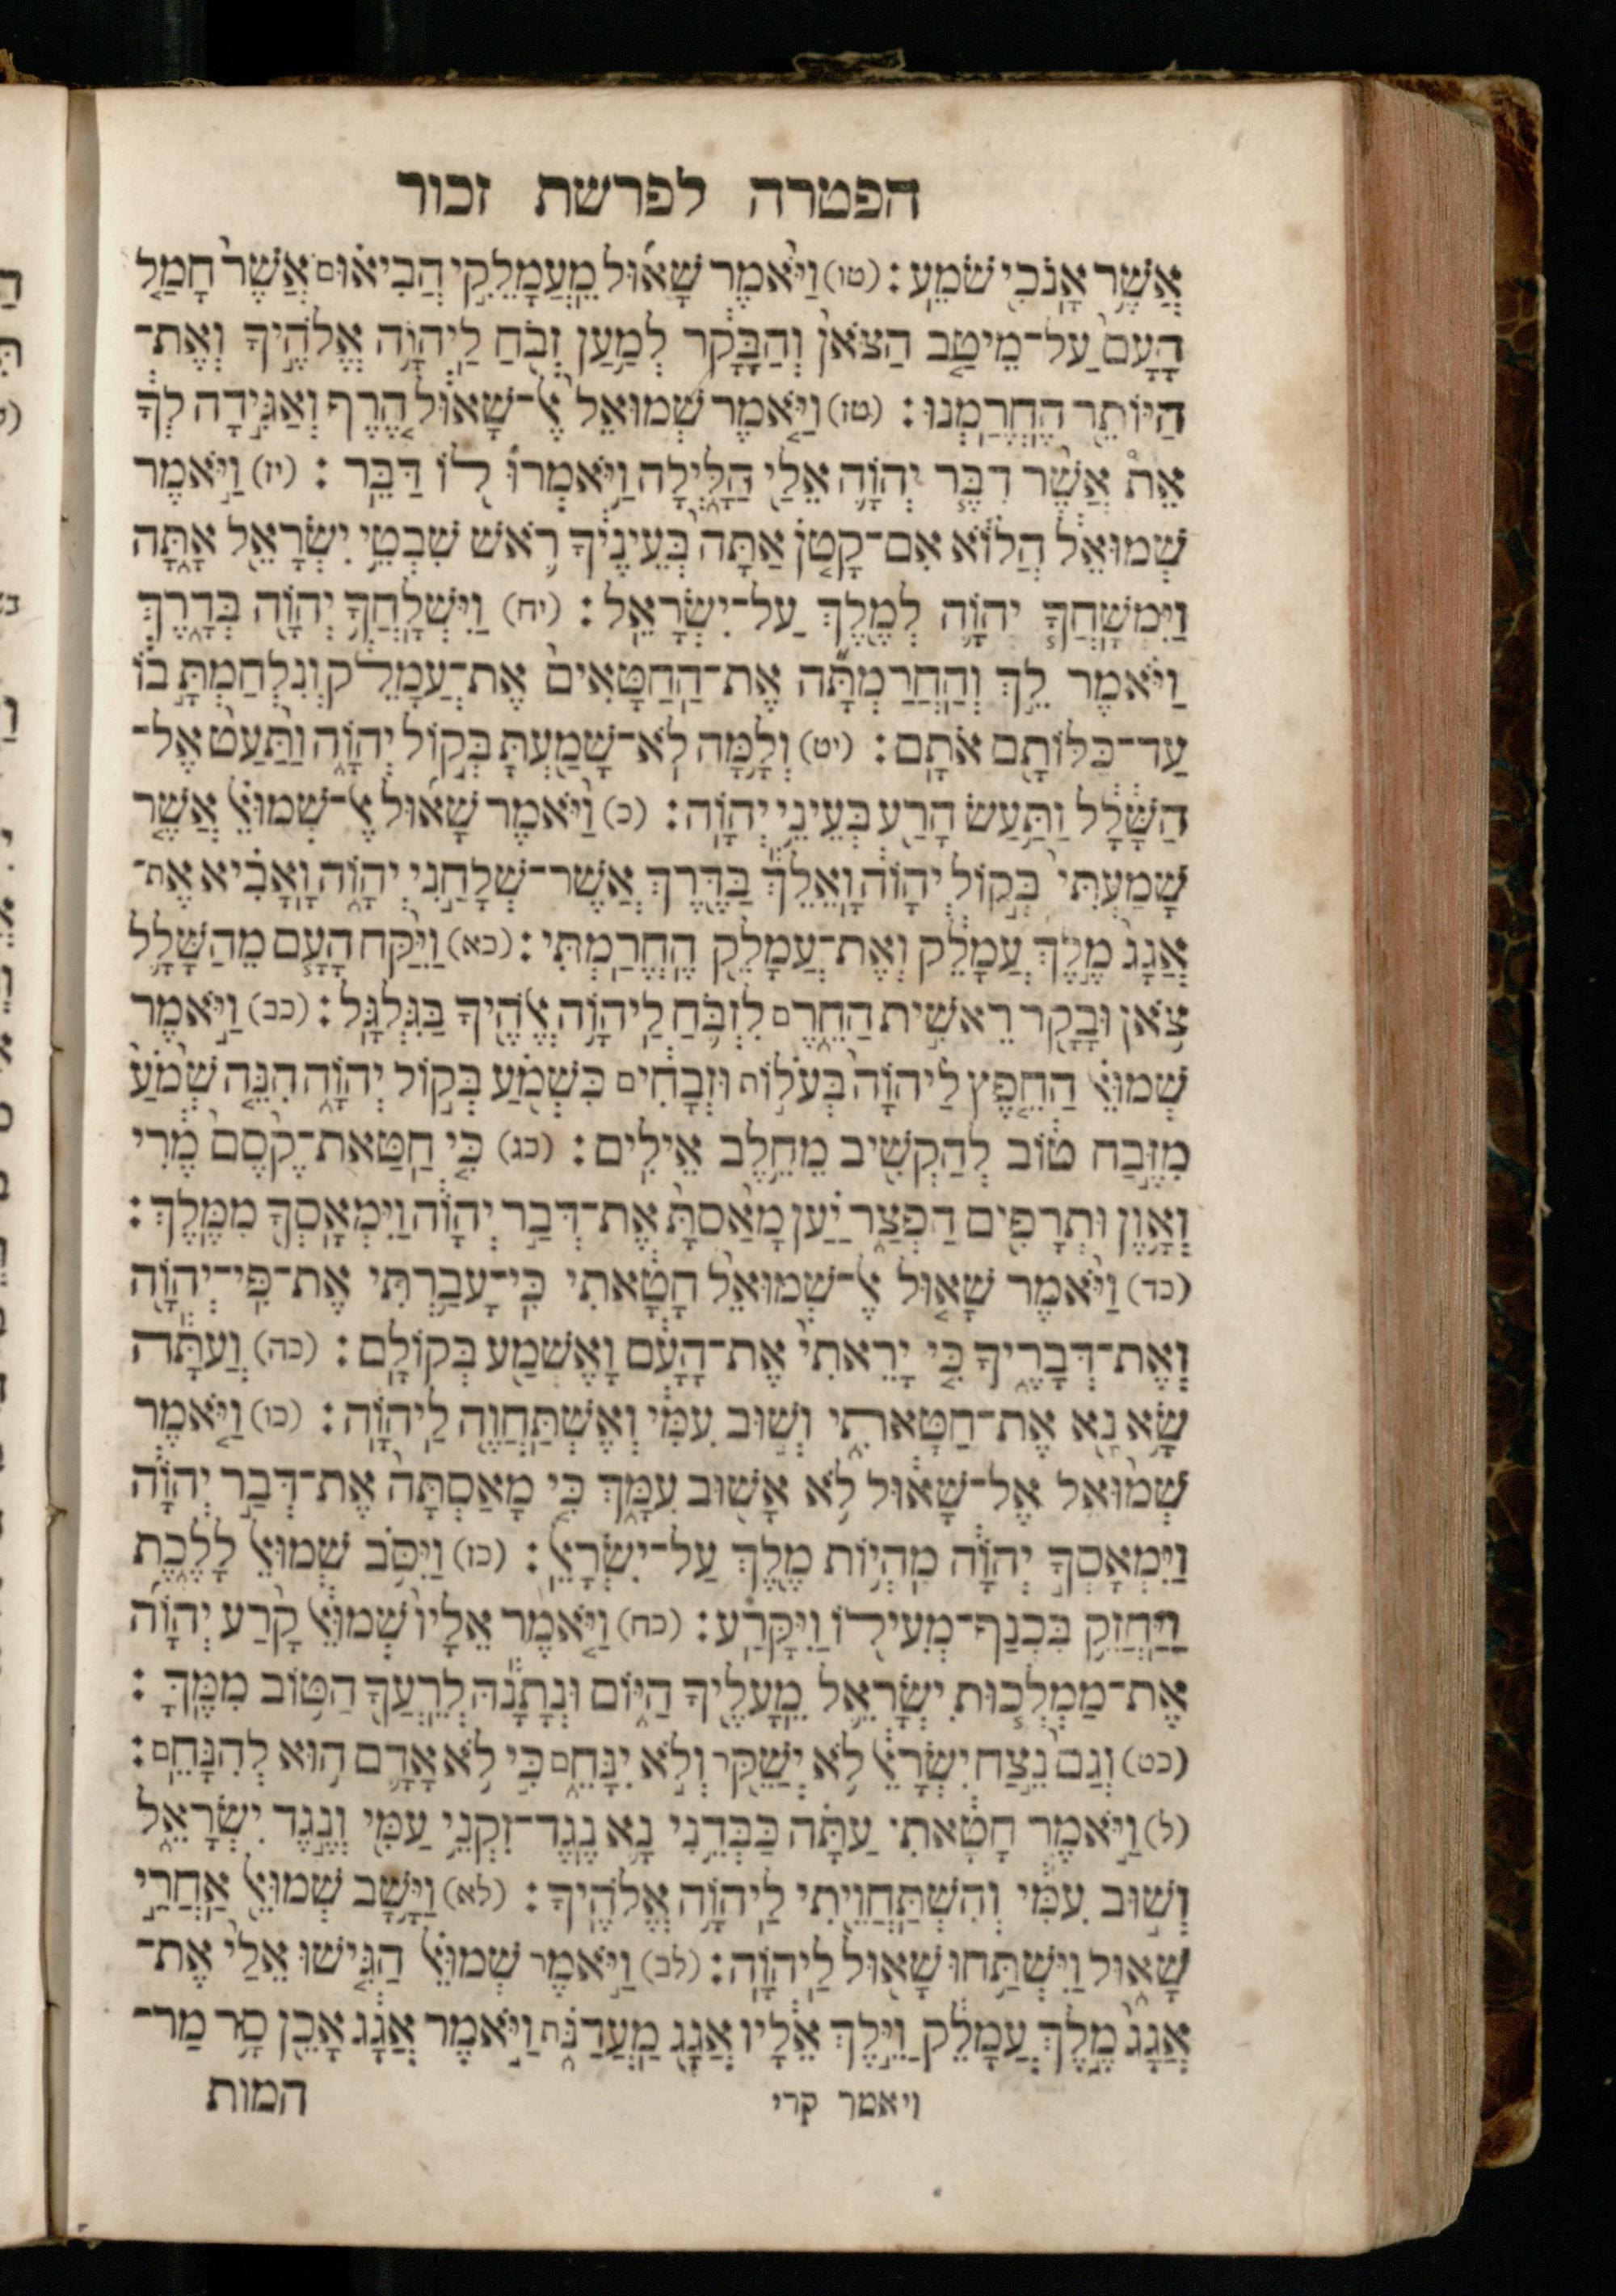 הפטרה לפרשת זכור
אֲשֶׁ֥ר אָֽנֹכִ֖י שֹׁמֵֽעַ׃ (טו) וַיֹּ֨אמֶר שָׁא֜וּל מֵעֲמָלֵקִ֣י הֱבִיא֗וּם אֲשֶׁ֨ר חָמַ֤ל
הָעָם֙ עַל־מֵיטַ֤ב הַצֹּאן֙ וְהַבָּקָ֔ר לְמַ֥עַן זְבֹ֖חַ לַֽיהוָ֣ה אֱלֹהֶ֑יךָ וְאֶת־
הַיּוֹתֵ֖ר הֶחֱרַֽמְנוּ׃ (טז) וַיֹּ֤אמֶר שְׁמוּאֵל֙ אֶל־שָׁא֔וּל הֶ֚רֶף וְאַגִּ֣ידָה לְּךָ֔
אֵת֩ אֲשֶׁ֨ר דִּבֶּ֧ר יְהוָ֛ה אֵלַ֖י הַלָּ֑יְלָה וַיֹּ֥אמְרוּ ל֖וֹ דַּבֵּֽר׃ (יז) וַיֹּ֣אמֶר
שְׁמוּאֵ֔ל הֲל֗וֹא אִם־קָטֹ֤ן אַתָּה֙ בְּעֵינֶ֔יךָ רֹ֛אשׁ שִׁבְטֵ֥י יִשְׂרָאֵ֖ל אָ֑תָּה
וַיִּמְשָׁחֲךָ֧ יְהוָ֛ה לְמֶ֖לֶךְ עַל־יִשְׂרָאֵֽל׃ (יח) וַיִּשְׁלָחֲךָ֥ יְהוָ֖ה בְּדָ֑רֶךְ
וַיֹּ֗אמֶר לֵ֣ךְ וְהַחֲרַמְתָּ֞ה אֶת־הַֽחַטָּאִים֙ אֶת־עֲמָלֵ֔ק וְנִלְחַמְתָּ֣ ב֔וֹ
עַד־כַּלּוֹתָ֖ם אֹתָֽם׃ (יט) וְלָ֥מָּה לֹא־שָׁמַ֖עְתָּ בְּק֣וֹל יְהוָ֑ה וַתַּ֙עַט֙ אֶל־
הַשָּׁלָ֔ל וַתַּ֥עַשׂ הָרַ֖ע בְּעֵינֵ֥י יְהוָֽה׃ (כ) וַיֹּ֨אמֶר שָׁא֜וּל אֶל־שְׁמוּאֵ֗ל אֲשֶׁ֤ר
שָׁמַ֙עְתִּי֙ בְּק֣וֹל יְהוָ֔ה וָאֵלֵ֕ךְ בַּדֶּ֖רֶךְ אֲשֶׁר־שְׁלָחַ֣נִי יְהוָ֑ה וָאָבִ֗יא אֶת־
אֲגַג֙ מֶ֣לֶךְ עֲמָלֵ֔ק וְאֶת־עֲמָלֵ֖ק הֶחֱרַֽמְתִּי׃ (כא) וַיִּקַּ֨ח הָעָ֧ם מֵהַשָּׁלָ֛ל
צֹ֥אן וּבָקָ֖ר רֵאשִׁ֣ית הַחֵ֑רֶם לִזְבֹּ֛חַ לַֽיהוָ֥ה אֱלֹהֶ֖יךָ בַּגִּלְגָּֽל׃ (כב) וַיֹּ֣אמֶר
שְׁמוּאֵ֗ל הַחֵ֤פֶץ לַֽיהוָה֙ בְּעֹל֣וֹת וּזְבָחִ֔ים כִּשְׁמֹ֖עַ בְּק֣וֹל יְהוָ֑ה הִנֵּ֤ה שְׁמֹ֙עַ֙
מִזֶּ֣בַח ט֔וֹב לְהַקְשִׁ֖יב מֵחֵ֥לֶב אֵילִֽים׃ (כג) כִּ֤י חַטַּאת־קֶ֙סֶם֙ מֶ֔רִי
וְאָ֥וֶן וּתְרָפִ֖ים הַפְצַ֑ר יַ֗עַן מָאַ֙סְתָּ֙ אֶת־דְּבַ֣ר יְהוָ֔ה וַיִּמְאָסְךָ֖ מִמֶּֽלֶךְ׃
(כד) וַיֹּ֨אמֶר שָׁא֤וּל אֶל־שְׁמוּאֵל֙ חָטָ֔אתִי כִּֽי־עָבַ֥רְתִּי אֶת־פִּֽי־יְהוָ֖ה
וְאֶת־דְּבָרֶ֑יךָ כִּ֤י יָרֵ֙אתִי֙ אֶת־הָעָ֔ם וָאֶשְׁמַ֖ע בְּקוֹלָֽם׃ (כה) וְעַתָּ֕ה
שָׂ֥א נָ֖א אֶת־חַטָּאתִ֑י וְשׁ֣וּב עִמִּ֔י וְאֶֽשְׁתַּחֲוֶ֖ה לַֽיהוָֽה׃ (כו) וַיֹּ֤אמֶר
שְׁמוּאֵל֙ אֶל־שָׁא֔וּל לֹ֥א אָשׁ֖וּב עִמָּ֑ךְ כִּ֤י מָאַ֙סְתָּה֙ אֶת־דְּבַ֣ר יְהוָ֔ה
וַיִּמְאָסְךָ֣ יְהוָ֔ה מִהְי֥וֹת מֶ֖לֶךְ עַל־יִשְׂרָאֵֽל׃ (כז) וַיִּסֹּ֥ב שְׁמוּאֵ֖ל לָלֶ֑כֶת
וַיַּחֲזֵ֥ק בִּכְנַף־מְעִיל֖וֹ וַיִּקָּרַֽע׃ (כח) וַיֹּ֤אמֶר אֵלָיו֙ שְׁמוּאֵ֔ל קָרַ֨ע יְהוָ֜ה
אֶת־מַמְלְכ֧וּת יִשְׂרָאֵ֛ל מֵעָלֶ֖יךָ הַיּ֑וֹם וּנְתָנָ֕הּ לְרֵעֲךָ֖ הַטּ֥וֹב מִמֶּֽךָּ׃
(כט) וְגַם֙ נֵ֣צַח יִשְׂרָאֵ֔ל לֹ֥א יְשַׁקֵּ֖ר וְלֹ֣א יִנָּחֵ֑ם כִּ֣י לֹ֥א אָדָ֛ם ה֖וּא לְהִנָּחֵֽם׃
(ל) וַיֹּ֣אמֶר חָטָ֔אתִי עַתָּ֗ה כַּבְּדֵ֥נִי נָ֛א נֶ֥גֶד־זִקְנֵ֥י עַמִּ֖י וְנֶ֣גֶד יִשְׂרָאֵ֑ל
וְשׁ֣וּב עִמִּ֔י וְהִֽשְׁתַּחֲוֵ֖יתִי לַֽיהוָ֥ה אֱלֹהֶֽיךָ׃ (לא) וַיָּ֥שָׁב שְׁמוּאֵ֖ל אַחֲרֵ֣י
שָׁא֑וּל וַיִּשְׁתַּ֥חוּ שָׁא֖וּל לַֽיהוָֽה׃ (לב) וַיֹּ֣אמֶר שְׁמוּאֵ֗ל הַגִּ֤ישׁוּ אֵלַי֙ אֶת־
אֲגַג֙ מֶ֣לֶךְ עֲמָלֵ֔ק וַיֵּ֣לֶךְ אֵלָ֔יו אֲגַ֖ג מַעֲדַנֹּ֑ת וַיֹּ֣אמֶר אֲגָ֔ג אָכֵ֖ן סָ֥ר מַר־
ויאמר קרי
המות